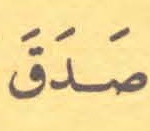 صَدَقَ